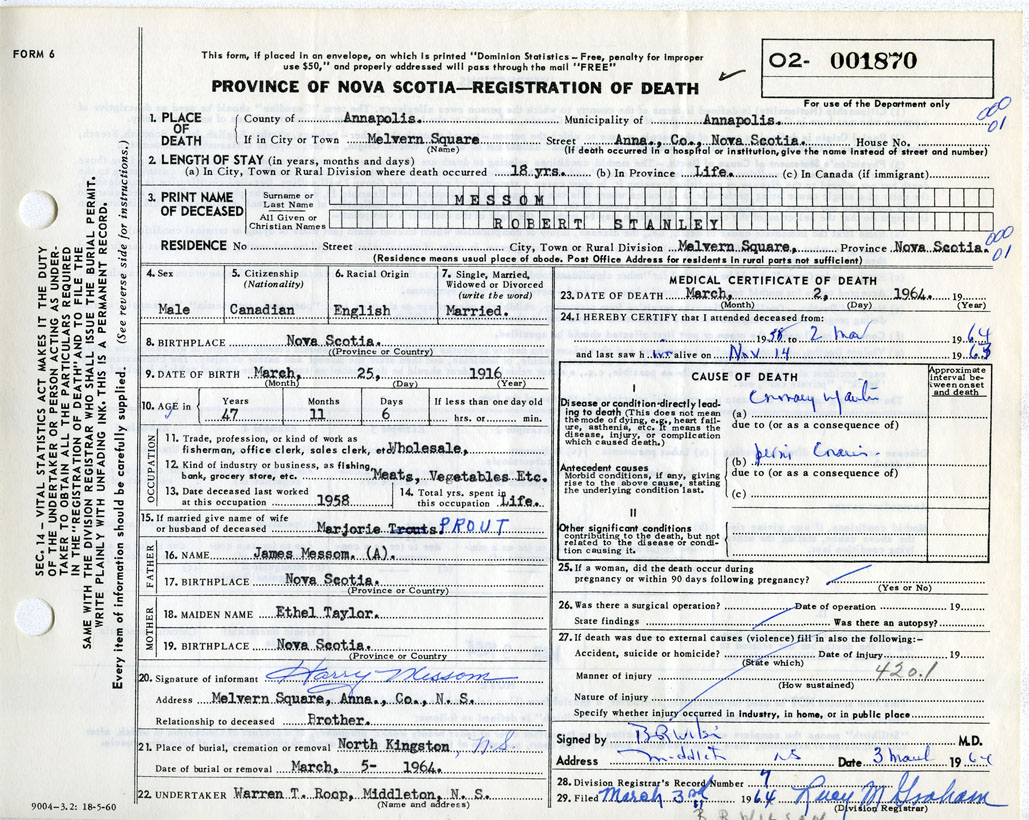 FORM 6
This form, if placed in an envelope, on which is printed "Dominion Statistics - Free, penalty for improper
use $50," and properly addressed will pass through the mail "FREE"
PROVINCE OF NOVA SCOTIA—REGISTRATION OF DEATH
O2- 001870
For use of the Department only
000
01
1. PLACE OF DEATH
County of Annapolis. Municipality of Annapolis.
If in City or Town Melvern Square Street Anna., Co., Nova Scotia. House No.
(Name) (If death occurred in hospital or institution, give the name instead of street and number)
2. LENGTH OF STAY (in years, months and days)
(a) In City, Town or Rural Division where death occurred 18 yrs. (b) In Province Life. (c) In Canada (if immigrant)
3. PRINT NAME OF DECEASED
Surname or Last Name MESSOM
All Given or Christian Names ROBERT STANLEY
RESIDENCE No Street City, Town or Rural Division Melvern Square, Province Nova Scotia.
000
01
(Residence means usual place of abode. Post Office Address for residents in rural parts not sufficient)
4. Sex
Male
5. Citizenship
(Nationality)
Canadian
6. Racial Origin
English
7. Single, Married,
Widowed or Divorced
(write the word)
Married.
8. BIRTHPLACE Nova Scotia.
((Province or Country)
9. DATE OF BIRTH March, 25, 1916
(Month) (Day) (Year)
10. AGE in
Years Months Days If less than one day old
47 11 6 hrs. or min.
OCCUPATION
11. Trade, profession, or kind of work as
fisherman, office clerk, sales clerk, etc. Wholesale,
12. Kind of industry or business, as fishing,
bank, grocery store, etc. Meats, Vegetables Etc.
13. Date deceased last worked
at this occupation 1958
14. Total yrs. spent in
this occupation Life.
15. If married give name of wife
or husband of deceased Marjorie Trouts PROUT
FATHER
16. NAME James Messom. (A).
17. BIRTHPLACE Nova Scotia.
(Province or Country)
MOTHER
18. MAIDEN NAME Ethel Taylor.
19. BIRTHPLACE Nova Scotia.
(Province or Country
20. Signature of informant Harry Messom
Address Melvern Square, Anna., Co., N. S.
Relationship to deceased Brother.
21. Place of burial, cremation or removal North Kingston, N.S.
Date of burial or removal March, 5- 1964.
22. UNDERTAKER Warren T. Roop, Middleton, N. S.
(Name and address)
MEDICAL CERTIFICATE OF DEATH
23. DATE OF DEATH March, 2, 1964. 19
(Month) (Day) (Year)
24. I HEREBY CERTIFY that I attended deceased from:
1958 to 2 Mar 1964
and last saw h im alive on Nov 14 1963
CAUSE OF DEATH
Approximate
interval be-
tween onset
and death
I
Disease or condition directly lead-
ing to death (This does not mean
the mode of dying, e.g., heart fail-
ure, asthenia, etc. It means the
disease, injury, or complication
which caused death.)
(a) Coronary
due to (or as a consequence of)
Antecedent causes
Morbid conditions, if any, giving
rise to the above cause, stating
the underlying condition last.
(b)
due to (or as a consequence of)
(c)
II
Other significant conditions
contributing to the death, but not
related to the disease or condi-
tion causing it.
25. If a woman, did the death occur during
pregnancy or within 90 days following pregnancy?
(Yes or No)
26. Was there a surgical operation? Date of operation 19
State findings Was there an autopsy?
27. If death was due to external causes (violence) fill in also the following:—
Accident, suicide or homicide? Date of injury 19
(State which)
Manner of injury 420.1
(How sustained)
Nature of injury
Specify whether injury occurred in industry, in home, or in public place
Signed by M.D.
Address NS Date 3 March 1964
28. Division Registrar's Record Number 7
29. Filed March 3rd 1964 Lucy M Graham
(Division Registrar)
B R WILSON
9004-3.2: 18-5-60
SEC. 14 - VITAL STATISTICS ACT MAKES IT THE DUTY
OF THE UNDERTAKER OR PERSON ACTING AS UNDER-
TAKER TO OBTAIN ALL THE PARTICULARS REQUIRED
IN THE "REGISTRATION OF DEATH" AND TO FILE THE
SAME WITH THE DIVISION REGISTRAR WHO SHALL ISSUE THE BURIAL PERMIT.
WRITE PLAINLY WITH UNFADING INK. THIS IS A PERMANENT RECORD.
Every item of information should be carefully supplied. (See reverse side for instructions.)